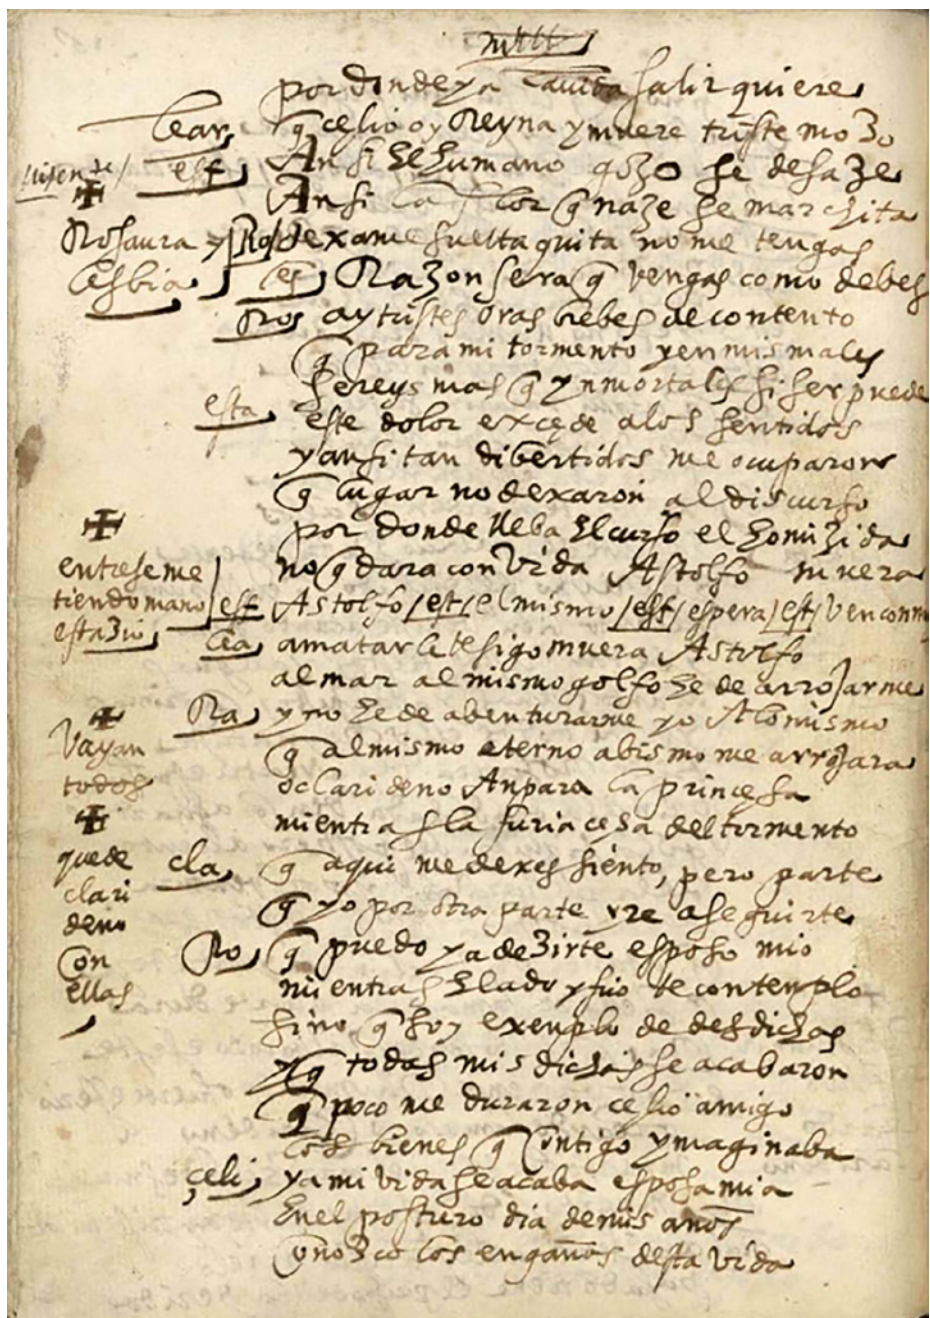 por donde ya la uida salir quiere
lear, q celio oy Reyna y muere triste mozo
esf, Ansi el humano gozo se desaze
Ansi la flor q naze se marchita
Rosaura y Lesbia
Ro/ dexame suelta quita no me tengas
les, Razon sera q vengas como debes
Ros, ay tristes oras brebes de contento
q para mi tormento y en mis males
sereys mas q ynmortales si ser puede
esta, este dolor excede a los sentidos
y ansi tan dibertidos me ocuparon
q lugar no dexaron al discurso
por donde lleba el curso el homizida
entrese metiendo mano estazio
no q dara con vida Astolfo muera
esf, Astolfo /est/ el mismo /esf/ espera /est/ ven
lea, a matarle te sigo muera Astolfo
al mar al mismo golfo he de arrojarme
Vayan todos
Ra, y no he de abenturarme yo A lo mismo
q al mismo eterno abismo me arrojara
o clarideno Anpara la princesa
mientras la furia cesa del tormento
quede clarideno con ellas
cla, q aqui me dexes siento, pero parte
q yo por otra parte yre a seguirte
Ro, q puedo ya dezirte esposo mio
mientras elado y frio te contemplo
sino q soy exenplo de desdichas
y q todas mis dichas se acabaron
q poco me duraron celio amigo
los bienes q contigo ymaginaba
celi, ya mi vida se acaba esposa mia
En el postrero dia de mis años
conozco los engaños desta vida